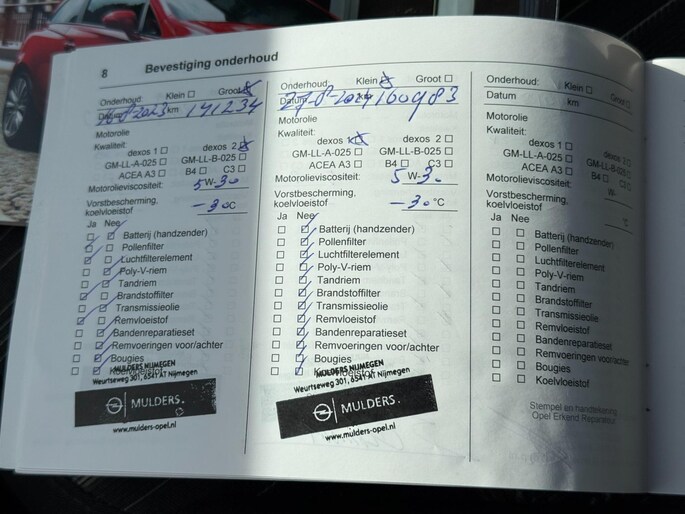 8 Bevestiging onderhoud
Onderhoud: Klein Groot
Datum km 141234
Motorolie
Kwaliteit:
dexos 1 dexos 2
GM-LL-A-025 GM-LL-B-025
ACEA A3 B4 C3
Motorolieviscositeit: 5 W-30
Vorstbescherming,
koelvloeistof -30°C
Ja Nee
Batterij (handzender)
Pollenfilter
Luchtfilterelement
Poly-V-riem
Tandriem
Brandstoffilter
Transmissieolie
Remvloeistof
Bandenreparatieset
Remvoeringen voor/achter
Bougies
Koelvloeistof
MULDERS NIJMEGEN
Weurtseweg 301, 6541 AT Nijmegen
MULDERS.
www.mulders-opel.nl
Onderhoud: Klein Groot
Datum 27-8-2024 km 160983
Motorolie
Kwaliteit:
dexos 1 dexos 2
GM-LL-A-025 GM-LL-B-025
ACEA A3 B4 C3
Motorolieviscositeit: 5 W-30
Vorstbescherming,
koelvloeistof -30°C
Ja Nee
Batterij (handzender)
Pollenfilter
Luchtfilterelement
Poly-V-riem
Tandriem
Brandstoffilter
Transmissieolie
Remvloeistof
Bandenreparatieset
Remvoeringen voor/achter
Bougies
Koelvloeistof
MULDERS NIJMEGEN
Weurtseweg 301, 6541 AT Nijmegen
MULDERS.
www.mulders-opel.nl
Onderhoud: Klein Groot
Datum km
Motorolie
Kwaliteit:
dexos 1 dexos 2
GM-LL-A-025 GM-LL-B-025
ACEA A3 B4 C3
Motorolieviscositeit: W-
Vorstbescherming,
koelvloeistof °C
Ja Nee
Batterij (handzender)
Pollenfilter
Luchtfilterelement
Poly-V-riem
Tandriem
Brandstoffilter
Transmissieolie
Remvloeistof
Bandenreparatieset
Remvoeringen voor/achter
Bougies
Koelvloeistof
Stempel en handtekening
Opel Erkend Reparateur